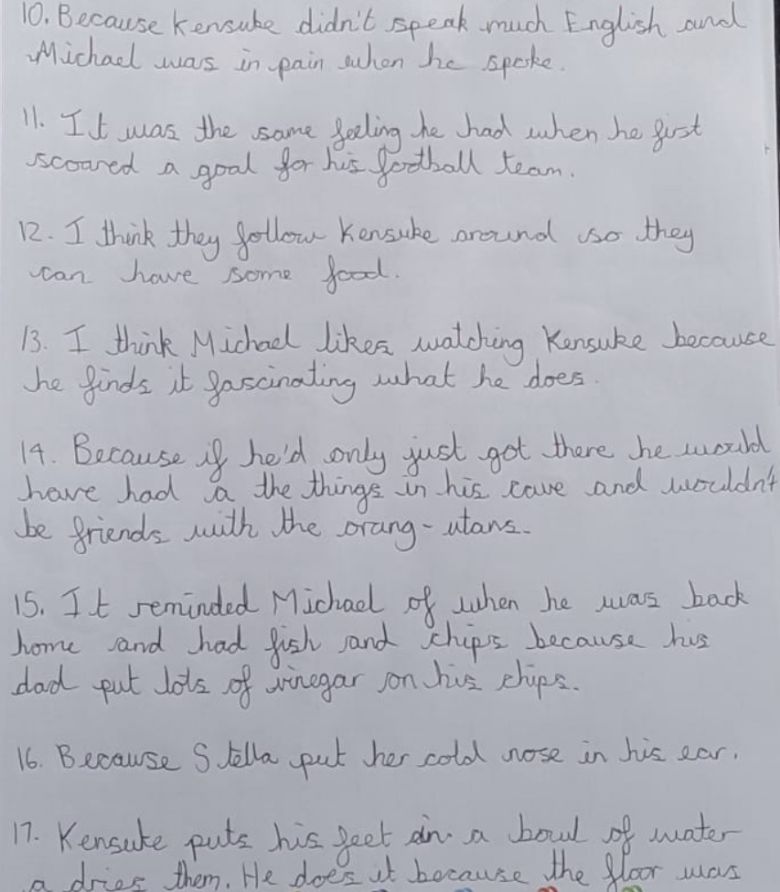 10. Because Kensuke didn't speak much English and
Michael was in pain when he spoke.
11. It was the same feeling he had when he first
scoared a goal for his football team.
12. I think they follow Kensuke around so they
can have some food.
13. I think Michael likes watching Kensuke because
he finds it fascinating what he does.
14. Because if he'd only just got there he would
have had a the things in his cave and wouldn't
be friends with the orang-utans.
15. It reminded Michael of when he was back
home and had fish and chips because his
dad put lots of vinegar on his chips.
16. Because Stella put her cold nose in his ear.
17. Kensuke puts his feet in a bowl of water
a dries them. He does it because the floor was